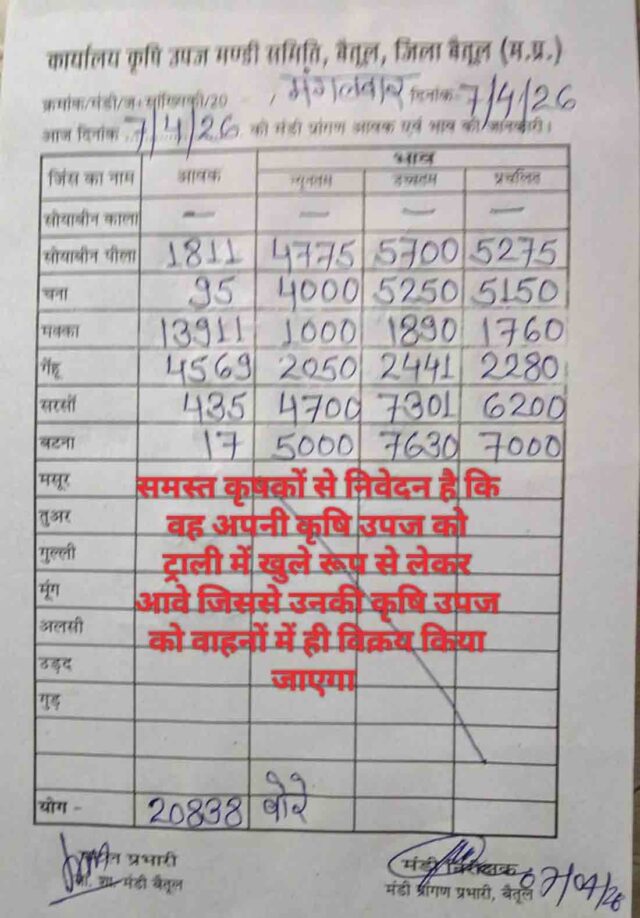 कार्यालय कृषि उपज मण्डी समिति, बैतूल, जिला बैतूल (म.प्र.)
क्रमांक/मंडी/ज. सांख्यिकी/20 , मंगलवार दिनांक 7/4/26
आज दिनांक 7/4/26 की मंडी प्रांगण आवक एवं भाव की जानकारी।
जिंस का नाम आवक भाव
न्यूनतम उच्चतम प्रचलित
सोयाबीन काला — — — —
सोयाबीन पीला 1811 4775 5700 5275
चना 95 4000 5250 5150
मक्का 13911 1000 1890 1760
गेंहू 4569 2050 2441 2280
सरसों 435 4700 7301 6200
बटना 17 5000 7630 7000
मसूर
तुअर
गुल्ली
मूंग
अलसी
उड़द
गुड़
समस्त कृषकों से निवेदन है कि
वह अपनी कृषि उपज को
ट्राली में खुले रूप से लेकर
आवे जिससे उनकी कृषि उपज
को वाहनों में ही विक्रय किया
जाएगा
योग - 20838 बोरे
प्रभारी
मंडी बैतूल
मंडी निरीक्षक 07/04/26
मंडी प्रांगण प्रभारी, बैतूल